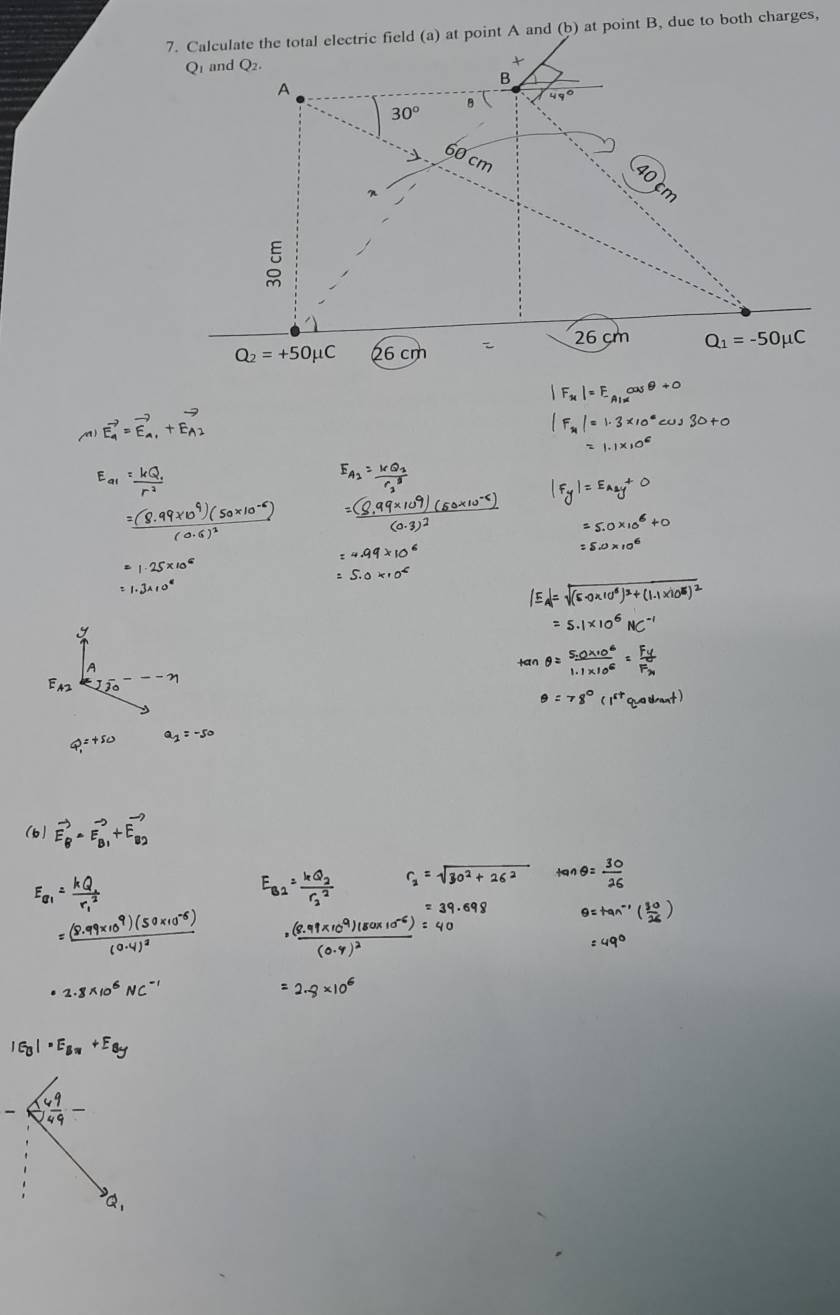 7. Calculate the total electric field (a) at point A and (b) at point B, due to both charges,
Q₁ and Q₂.
A
B
+
30°
θ
49°
60 cm
40 cm
30 cm
Q₂ = +50μC
26 cm
=
26 cm
Q₁ = -50μC
E⃗ₐ = E⃗ₐ₁ + E⃗A2
Eₐ₁ = kQ₁ / r²
= (8.99×10⁹)(50×10⁻⁶) / (0.6)²
= 1.25×10⁶
= 1.3×10⁶
= (8.99×10⁹)(50×10⁻⁶) / (0.3)²
= 4.99×10⁶
= 5.0×10⁶
|Fₓ| = 1.3×10⁶ cos 30+0
= 1.1×10⁶
= 5.0×10⁶+0
= 5.0×10⁶
= 5.1×10⁶ NC⁻¹
tan θ = 5.0×10⁶ / 1.1×10⁶ = Fy / Fx
θ = 78° (1st quadrant)
y
A
EA2
30
x
= +50
= -50
(b) E⃗B = E⃗B₁ + E⃗B2
= (8.99×10⁹)(50×10⁻⁶) / (0.4)²
= 2.8×10⁶ NC⁻¹
EB2 = kQ₂ / r₂²
= (8.99×10⁹)(50×10⁻⁶) / (0.4)²
= 2.8×10⁶
r₂ = √30² + 26²
= 39.698
= 40
tan θ = 30 / 26
θ = tan⁻¹ (30/26)
= 49°
|EB| = EBx + EBy
49
49
Q₁